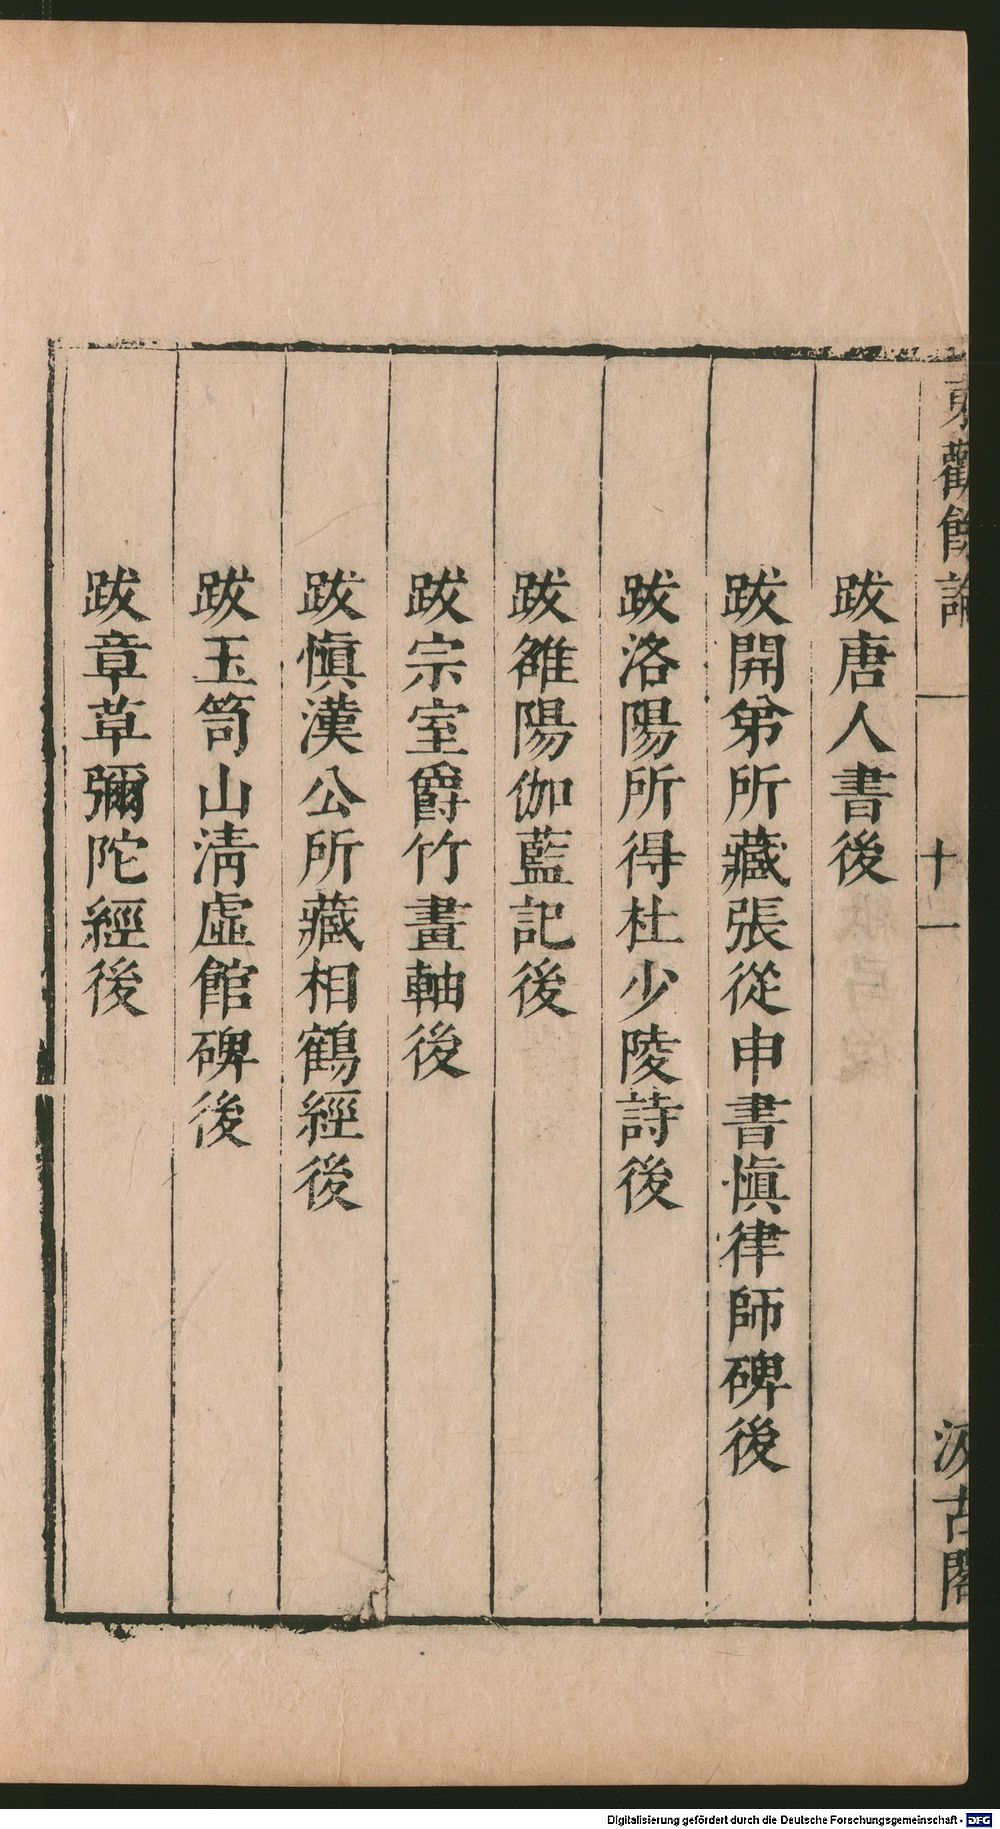 東觀餘論
十一
汲古閣
跋唐人書後
跋開弟所藏張從申書慎律師碑後
跋洛陽所得杜少陵詩後
跋雒陽伽藍記後
跋宗室爵竹畫軸後
跋慎漢公所藏相鶴經後
跋玉笥山淸虛館碑後
跋章草彌陀經後
Digitalisierung gefördert durch die Deutsche Forschungsgemeinschaft - DFG